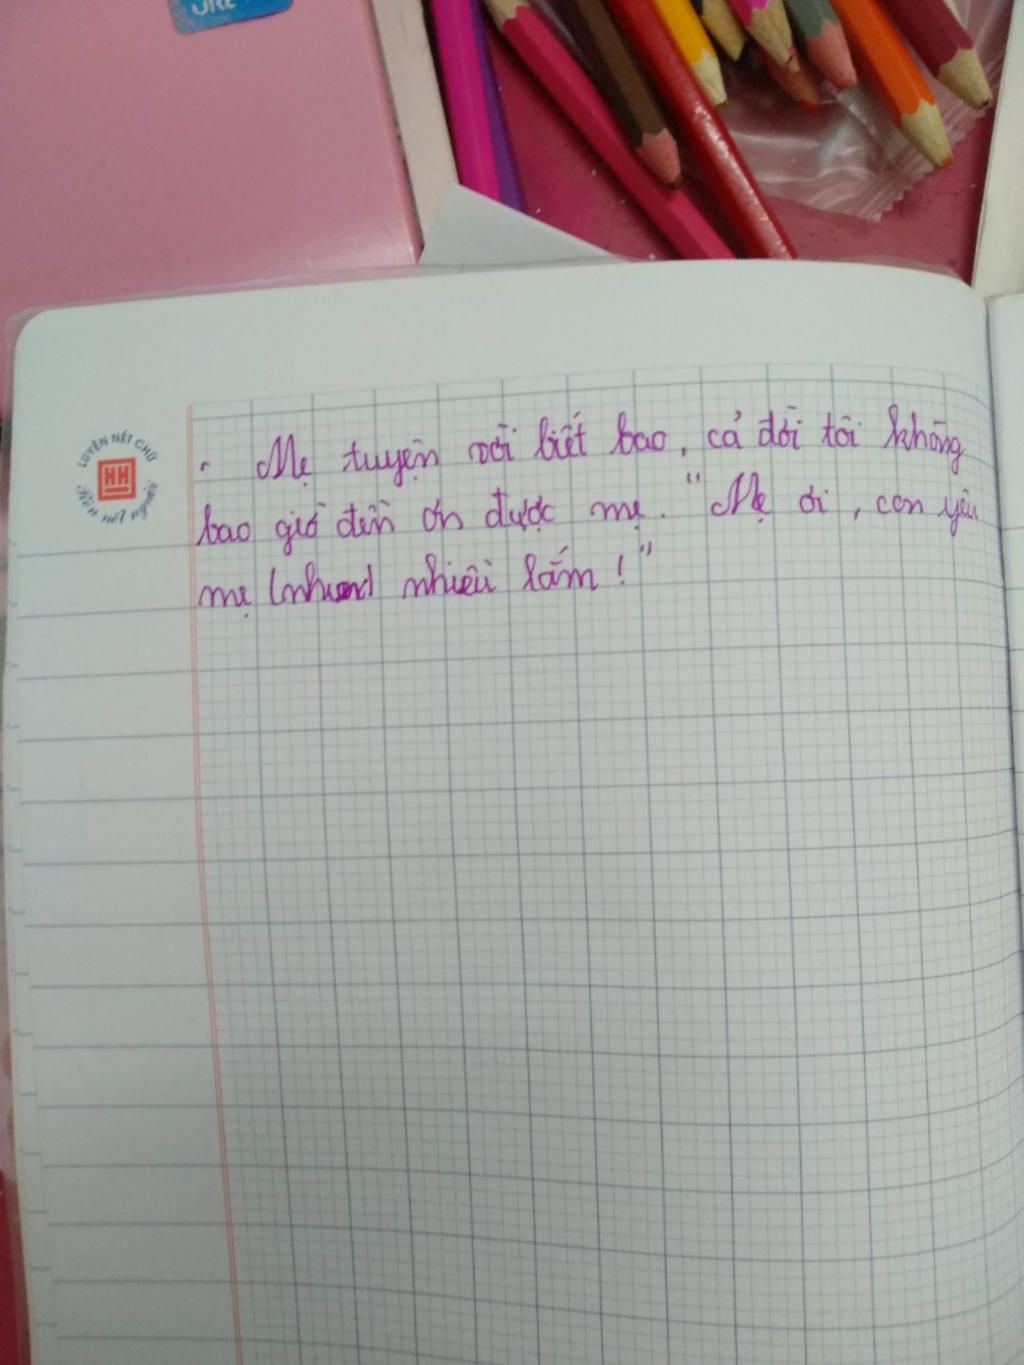 LUYỆN NÉT CHỮ
HH
Rèn nết người
Mẹ tuyện vời biết bao, cả đời tôi không
bao giờ đền ơn được mẹ. "Mẹ ơi, con yêu
mẹ nhiều lắm!"